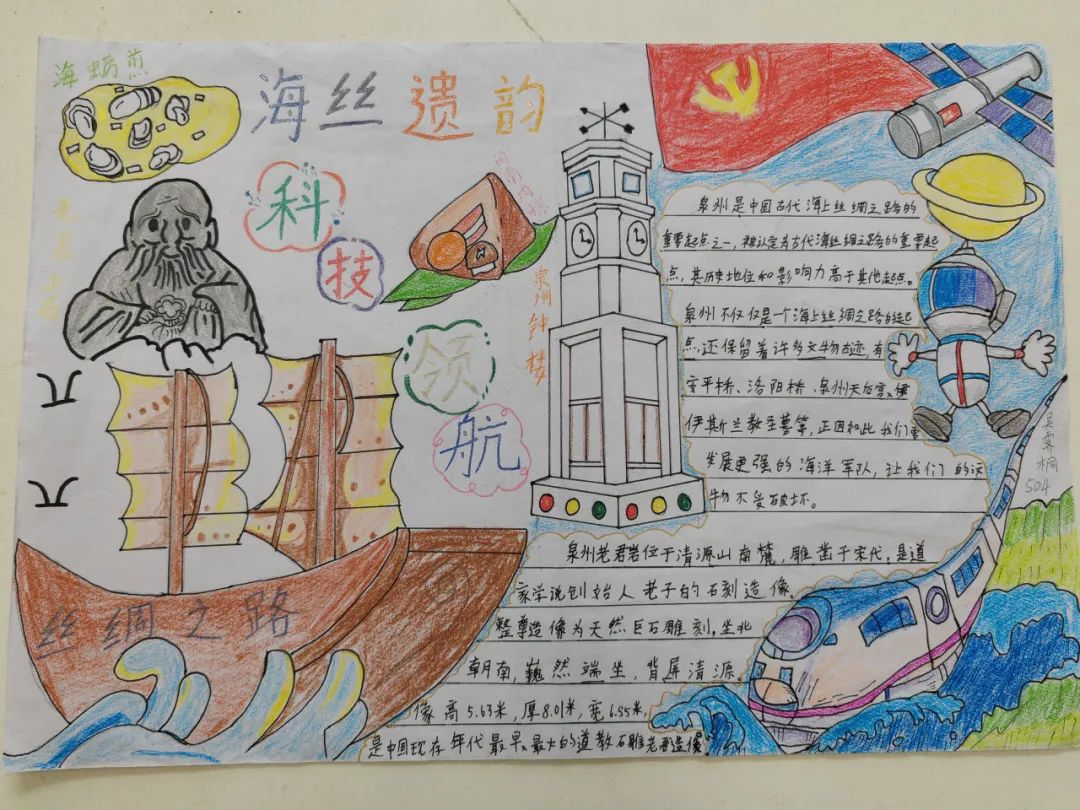 海蛎煎
海丝遗韵
科
技
领
航
老君岩
闽南肉粽
泉州钟楼
丝绸之路
泉州是中国古代海上丝绸之路的
重要起点之一，被认定为古代海丝绸之路的重要起
点，其历史地位和影响力高于其他起点。
泉州不仅仅是一个海上丝绸之路的起
点，还保留着许多文物古迹，有
安平桥、洛阳桥、泉州天后宫、伊
伊斯兰教圣墓等，正因如此我们要
发展更强的海洋军队，让我们的这
物不受破坏。
泉州老君岩位于清源山南麓，雕凿于宋代，是道
家学说创始人老子的石刻造像。
整尊造像为天然巨石雕刻，坐北
朝南，巍然端坐，背屏清源。
像高5.63米，厚8.01米，宽6.55米，
是中国现存年代最早、最大的道教石雕老君造像
504